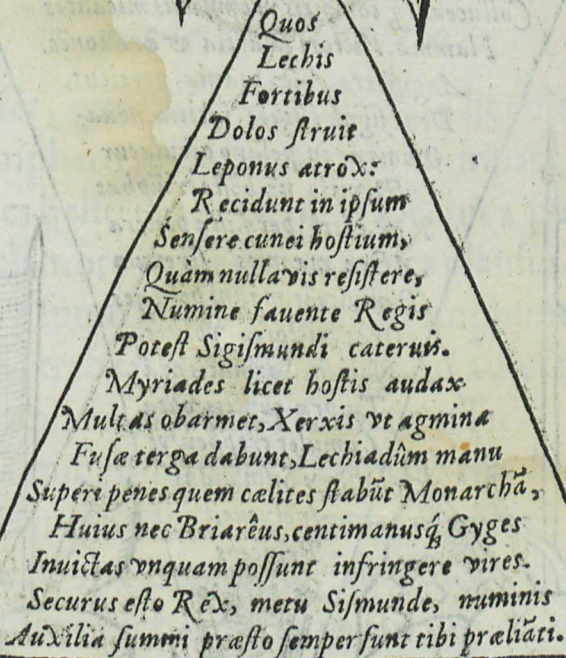 Quos
Lechis
Fortibus
Dolos ſtruit
Leponus atrox:
Recidunt in ipſum
Senſere cunei hoſtium,
Quàm nulla vis reſiſtere,
Numine fauente Regis
Poteſt Sigiſmundi cateruis.
Myriades licet hoſtis audax
Multas obarmet, Xerxis vt agmina
Fuſæ terga dabunt, Lechiadûm manu
Superi penes quem cælites ſtabūt Monarchā,
Huius nec Briarêus, centimanusq́; Gyges
Inuictas vnquam poſſunt infringere vires.
Securus eſto Rex, metu Siſmunde, numinis
Auxilia ſummi præſto ſemper ſunt tibi præliāti.